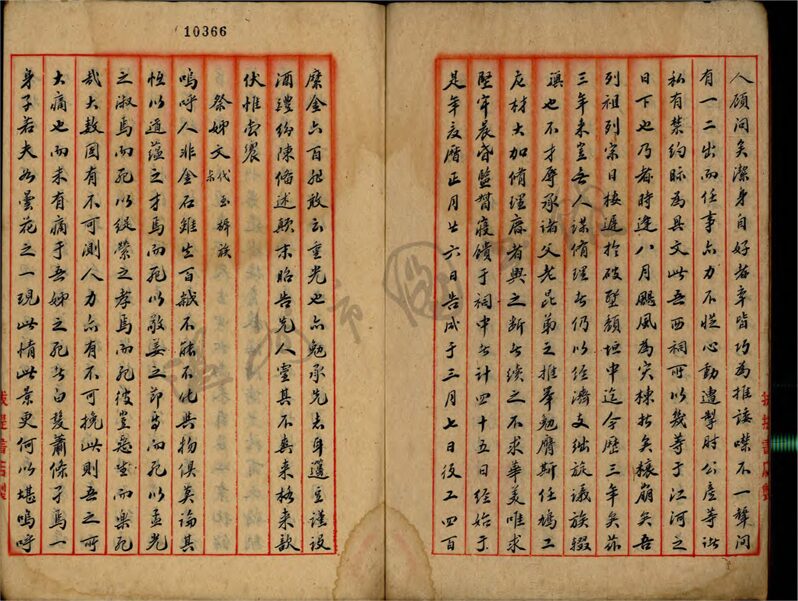 10366
人顧問矣潔身自好者率皆巧為推諉噤不一聲間
有一二出而任事亦力不從心動遭掣肘公產等諸
私有禁約眎為具文此吾西祠所以幾等于江河之
日下也乃者時逢八月颶風為災棟折矣榱崩矣吾
列祖列宗日棲遲於破壁頹垣中迄今歷三年矣茲
三年來豈無人謀脩理者仍以經濟支絀旋議旋輟
也不才辱承諸父老昆弟之推舉勉膺斯任鳩工
庀材大加脩理廢者興之斷者續之不求華美唯求
堅牢晨昏監督寢饋于祠中者計四十五日經始于
是年夏曆正月廿六日告成于三月七日役工四百
糜金六百胆敢云重光也亦勉承先志身選立謹設
酒醴紛陳脩述顛末昭告先人靈其不爽來格來歆
伏惟尚饗
祭姊文代玉族
嗚呼人非金石雖生百歲不能不化共物俱莫論其
恆以道蘊之才焉而死以敬姜之節焉而死以孟光
之淑焉而死以緹縈之孝焉而死彼豈惡生而樂死
哉大數固有不可測人力亦有不可挽此則吾之所
大痛也而未有痛于吾姊之死者白髮蕭條孑焉一
身子若夫如曇花之一現此情此景更何以堪嗚呼